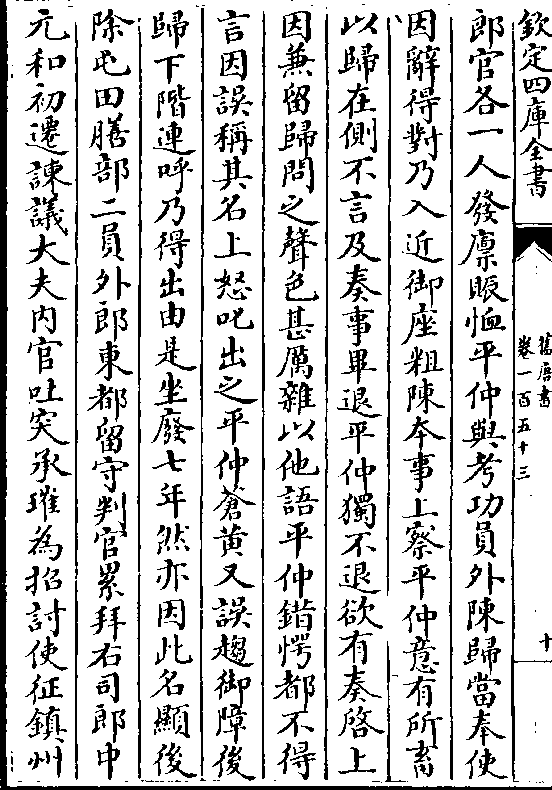 欽定四庫全書
舊唐書
卷一百五十三
十
郎官各一人發廪賑恤平仲與考功員外陳歸當奉使
因辭得對乃入近御座粗陳本事上察平仲意有所畜
以歸在側不言及奏事畢退平仲獨不退欲有奏啓上
因兼留歸問之聲色甚厲雜以他語平仲錯愕都不得
言因誤稱其名上怒叱出之平仲蒼黃又誤趨御障後
歸下階連呼乃得出由是坐廢七年然亦因此名顯後
除屯田膳部二員外郎東都留守判官累拜右司郎中
元和初遷諫議大夫内官吐突承璀為招討使征鎮州